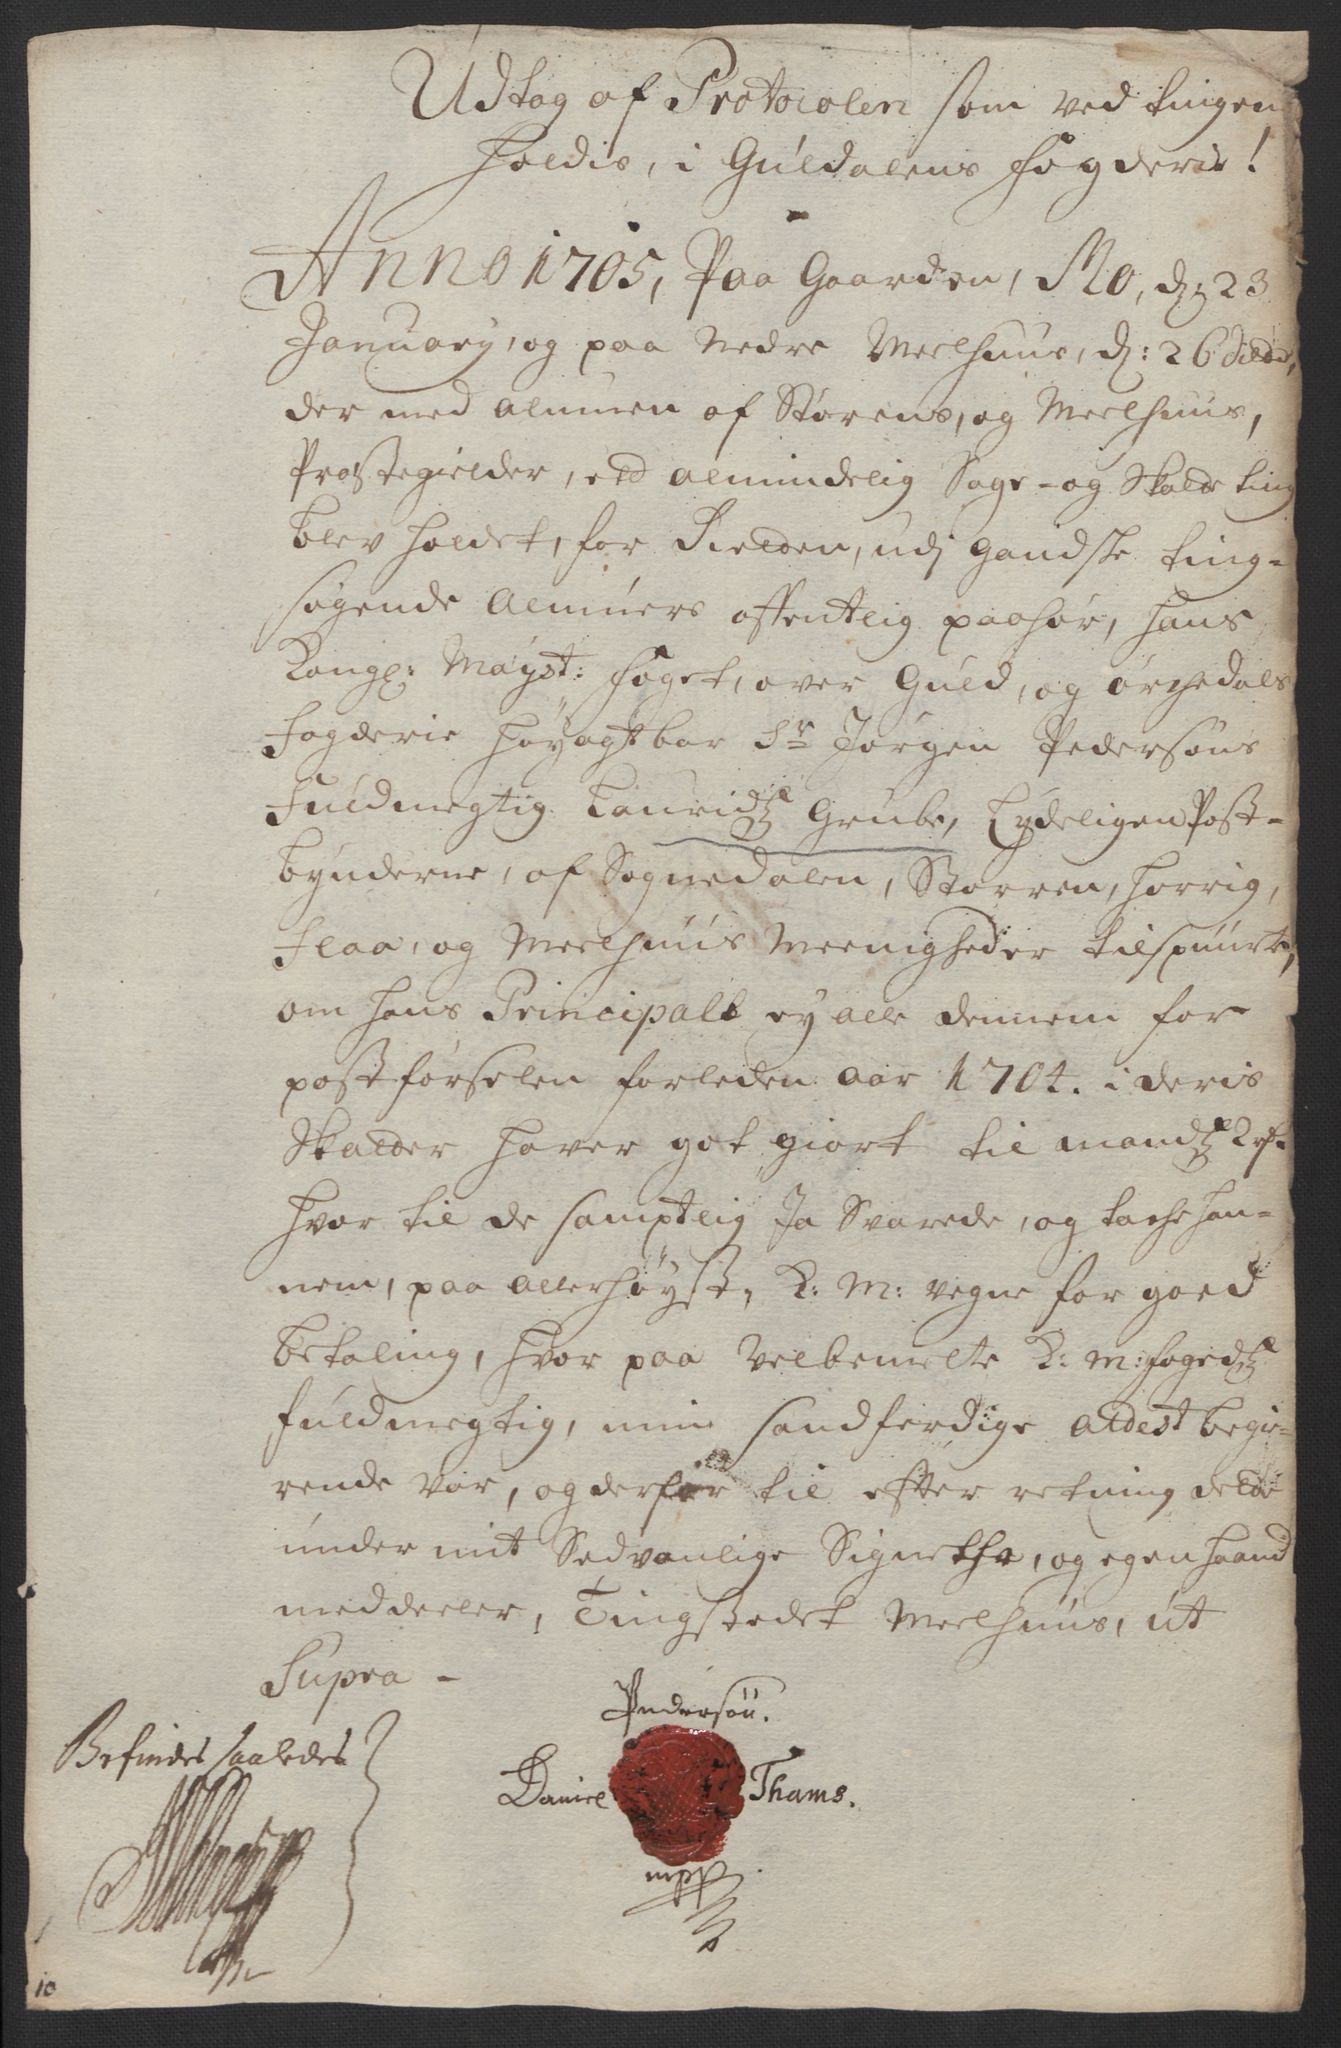 Udtog af Protocolen som ved tingen
holdis, i Guldalens fogderie!
Anno 1705, Paa Gaarden, Mo, d: 23
January, og paa Nedre Meelhuus, d: 26 dito,
der med Almuen af Størens, og Meelhuus,
Præstegielder, eed almindelig Sage- og Skatte ting
blev holdet, for Retten, udj gandske ting-
søgende Almuers offentlig paahør, hans
Kongl: Mayst: foget, over Guld, og Orchedals
fogderie høyagtbar Sr Jørgen Pedersøns
fuldmegtig Lauridtz Grube, Lydeligen Post-
bynderne, af Sognedalen, Størren, horrig,
flaa, og Meelhuus Meenigheder tilspuurte,
om hans Principall ey alle dennem for
postførselen forleden aar 1704. i deris
Skatter haver got giort til mandtz 2 rd
hvor til de samptlig Ja Svarede, og tache han-
nem, paa allerhøyst, K: M: vegne for goed
betaling, hvor paa velbemelte K: M: fogedtz
fuldmegtig, min sandferdige Attest begie-
rende var, og derfor til efter retning dette
under mit Sedvanlige Signethe, og egen haand
meddeeler, Tingstedet Meelhuus, ut
Supra -
Pedersøn.
Befindes saaledes
Daniel Thams.
mpp
10